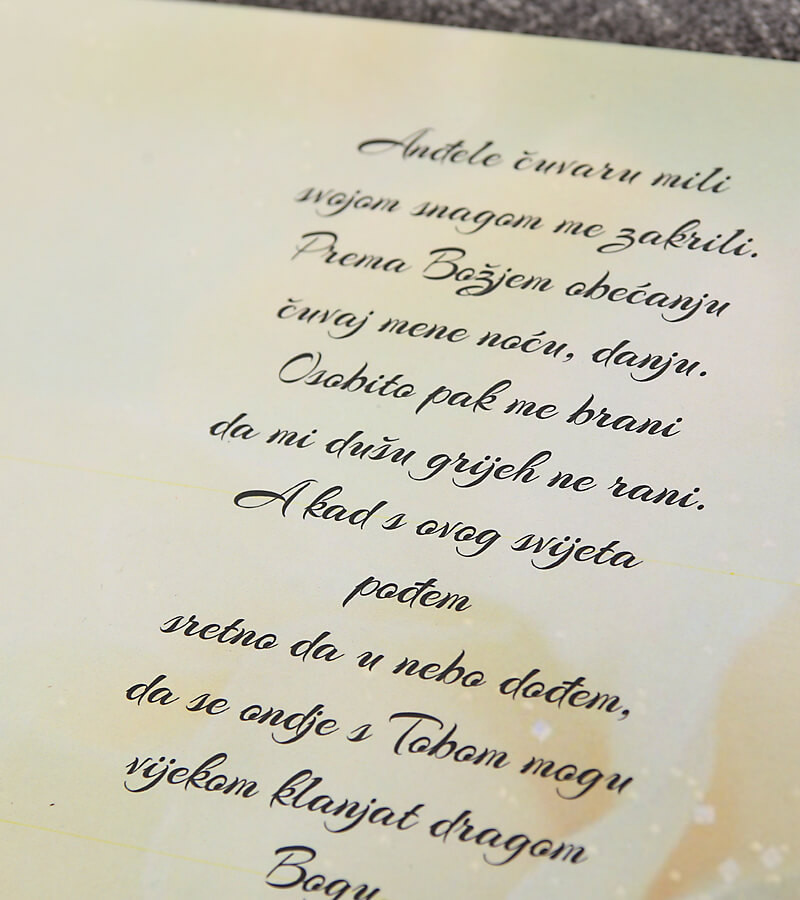 Anđele čuvaru mili
svojom snagom me zakrili.
Prema Božjem obećanju
čuvaj mene noću, danju.
Osobito pak me brani
da mi dušu grijeh ne rani.
A kad s ovog svijeta
pođem
sretno da u nebo dođem,
da se ondje s Tobom mogu
vijekom klanjat dragom
Bogu